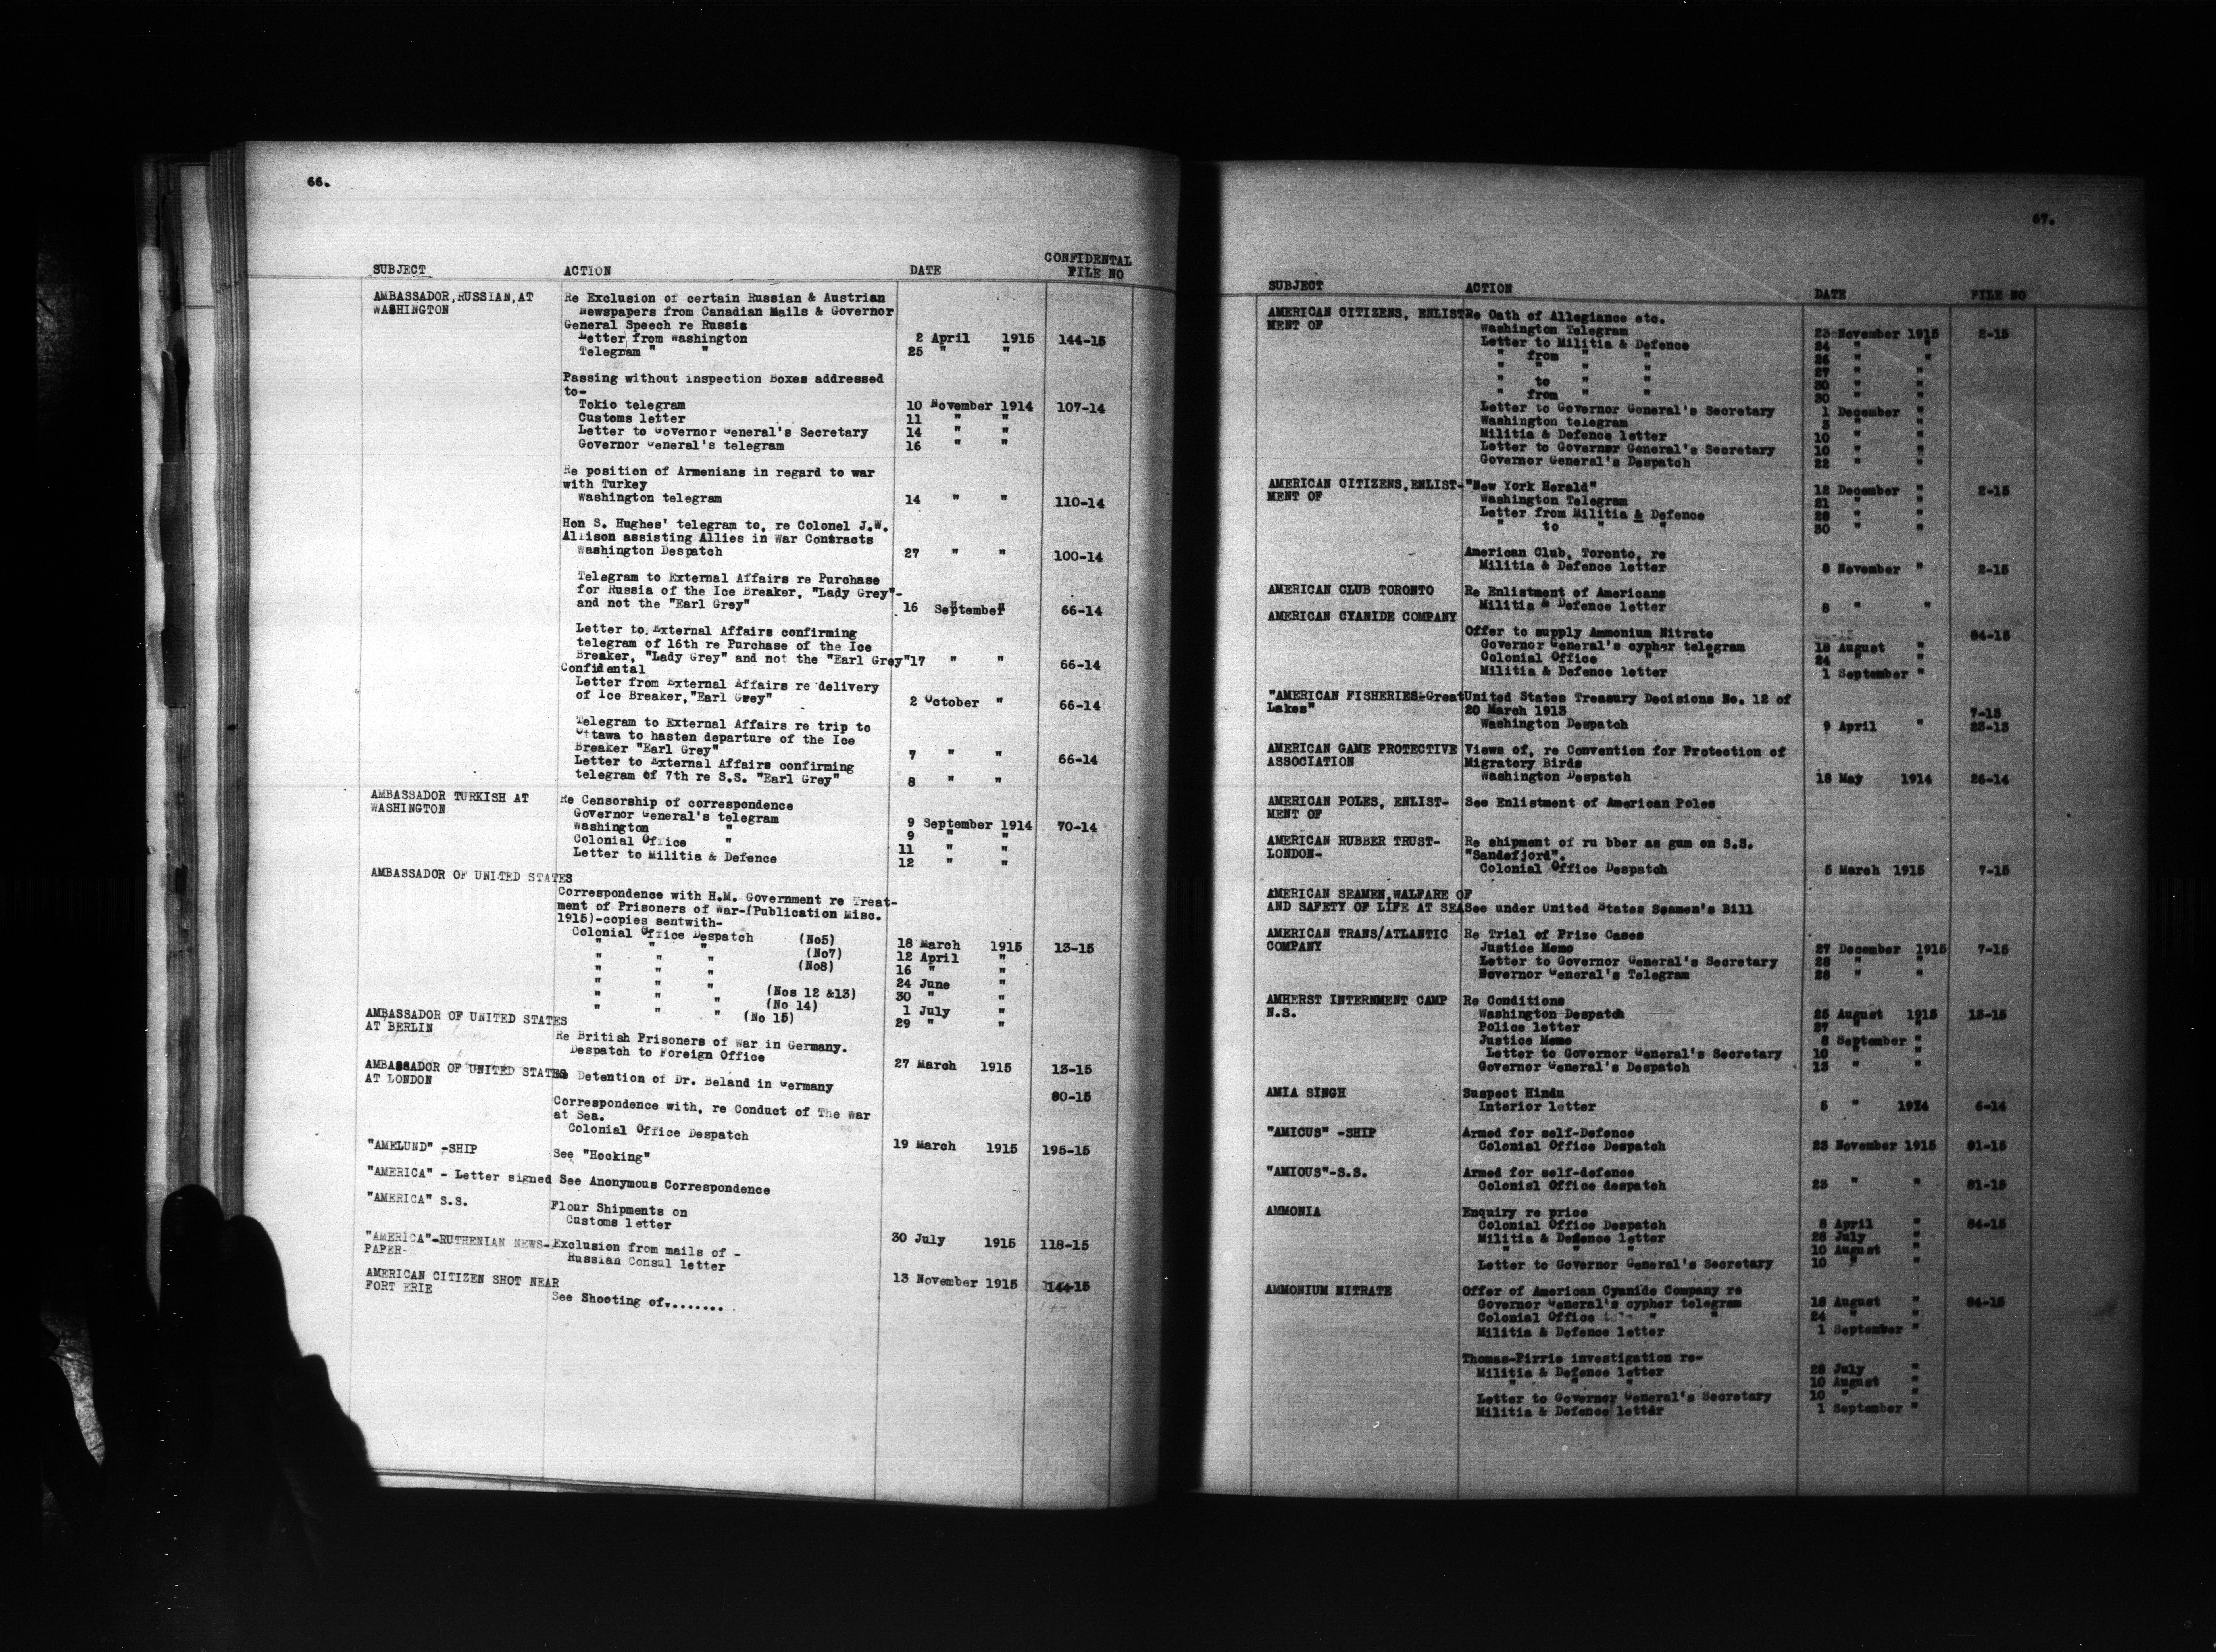 66.
CONFIDENTAL
SUBJECT ACTION DATE FILE NO
AMBASSADOR,RUSSIAN,AT Re Exclusion of certain Russian & Austrian
WASHINGTON Newspapers from Canadian Mails & Governor
General Speech re Russia
Letter from Washington 2 April 1915 144-15
Telegram " " 25 " "
Passing without inspection Boxes addressed
to-
Tokio telegram 10 November 1914 107-14
Customs letter 11 " "
Letter to Governor General's Secretary 14 " "
Governor General's telegram 16 " "
Re position of Armenians in regard to war
with Turkey
Washington telegram 14 " " 110-14
Hon S. Hughes' telegram to, re Colonel J.W.
Allison assisting Allies in War Contracts
Washington Despatch 27 " " 100-14
Telegram to External Affairs re Purchase
for Russia of the Ice Breaker, "Lady Grey"-
and not the "Earl Grey" 16 September " 66-14
Letter to External Affairs confirming
telegram of 16th re Purchase of the Ice
Breaker, "Lady Grey" and not the "Earl Grey" 17 " " 66-14
Confidental
Letter from External Affairs re delivery
of Ice Breaker,"Earl Grey" 2 October " 66-14
Telegram to External Affairs re trip to
Ottawa to hasten departure of the Ice
Breaker "Earl Grey" 7 " " 66-14
Letter to External Affairs confirming
telegram of 7th re S.S. "Earl Grey" 8 " "
AMBASSADOR TURKISH AT Re Censorship of correspondence
WASHINGTON Governor General's telegram 9 September 1914 70-14
Washington " 9 " "
Colonial Office " 11 " "
Letter to Militia & Defence 12 " "
AMBASSADOR OF UNITED STATES
Correspondence with H.M. Government re Treat-
ment of Prisoners of War-(Publication Misc.
1915)-copies sentwith-
Colonial Office Despatch (No5) 18 March 1915 13-15
" " " (No7) 12 April "
" " " (No8) 16 " "
" " " 24 June "
" " " (Nos 12 &13) 30 " "
" " " (No 14) 1 July "
" " " (No 15) 29 " "
AMBASSADOR OF UNITED STATES
AT BERLIN Re British Prisoners of War in Germany.
Despatch to Foreign Office 27 March 1915 13-15
AMBASSADOR OF UNITED STATES Re Detention of Dr. Beland in Germany 80-15
AT LONDON
Correspondence with, re Conduct of The War
at Sea.
Colonial Office Despatch 19 March 1915 195-15
"AMELUND" -SHIP See "Hocking"
"AMERICA" - Letter signed See Anonymous Correspondence
"AMERICA" S.S. Flour Shipments on
Customs letter 30 July 1915 118-15
"AMERICA"-RUTHENIAN NEWS- Exclusion from mails of -
PAPER- Russian Consul letter 13 November 1915 144-15
AMERICAN CITIZEN SHOT NEAR
FORT ERIE See Shooting of........
67.
SUBJECT ACTION DATE FILE NO
AMERICAN CITIZENS, ENLIST Re Oath of Allegiance etc.
MENT OF Washington Telegram 23 November 1915 2-15
Letter to Militia & Defence 24 " "
" from " " 26 " "
" " " " 27 " "
" to " " 30 " "
" from " " 30 " "
Letter to Governor General's Secretary 1 December "
Washington telegram 3 " "
Militia & Defence letter 10 " "
Letter to Governor General's Secretary 10 " "
Governor General's Despatch 22 " "
AMERICAN CITIZENS,ENLIST- "New York Herald" 12 December " 2-15
MENT OF Washington Telegram 21 " "
Letter from Militia & Defence 28 " "
" to " " 30 " "
American Club, Toronto, re
Militia & Defence letter 8 November " 2-15
AMERICAN CLUB TORONTO Re Enlistment of Americans
Militia & Defence letter 8 " "
AMERICAN CYANIDE COMPANY
Offer to supply Ammonium Nitrate 84-15
Governor General's cypher telegram 18 August "
Colonial Office " " 24 " "
Militia & Defence letter 1 September "
"AMERICAN FISHERIES-Great United States Treasury Decisions No. 12 of
Lakes" 20 March 1913 7-13
Washington Despatch 9 April " 23-13
AMERICAN GAME PROTECTIVE Views of, re Convention for Protection of
ASSOCIATION Migratory Birds
Washington Despatch 18 May 1914 26-14
AMERICAN POLES, ENLIST- See Enlistment of American Poles
MENT OF
AMERICAN RUBBER TRUST- Re shipment of ru bber as gum on S.S.
LONDON- "Sandefjord".
Colonial Office Despatch 5 March 1915 7-15
AMERICAN SEAMEN,WALFARE OF
AND SAFETY OF LIFE AT SEA See under United States Seamen's Bill
AMERICAN TRANS/ATLANTIC Re Trial of Prize Cases
COMPANY Justice Memo 27 December 1915 7-15
Letter to Governor General's Secretary 28 " "
Governor General's Telegram 28 " "
AMHERST INTERNMENT CAMP Re Conditions
N.S. Washington Despatch 25 August 1915 13-15
Police letter 27 " "
Justice Memo 8 September "
Letter to Governor General's Secretary 10 " "
Governor General's Despatch 13 " "
AMIA SINGH Suspect Hindu
Interior letter 5 " 1914 6-14
"AMICUS" -SHIP Armed for self-Defence
Colonial Office Despatch 23 November 1915 81-15
"AMIOUS"-S.S. Armed for self-defence
Colonial Office despatch 23 " " 81-15
AMMONIA Enquiry re price
Colonial Office Despatch 8 April " 84-15
Militia & Defence letter 28 July "
" " " 10 August "
Letter to Governor General's Secretary 10 " "
AMMONIUM NITRATE Offer of American Cyanide Company re
Governor General's cypher telegram 18 August " 84-15
Colonial Office " " 24 " "
Militia & Defence letter 1 September "
Thomas-Pirrie investigation re-
Militia & Defence letter 28 July "
" " " 10 August "
Letter to Governor General's Secretary 10 " "
Militia & Defence letter 1 September "